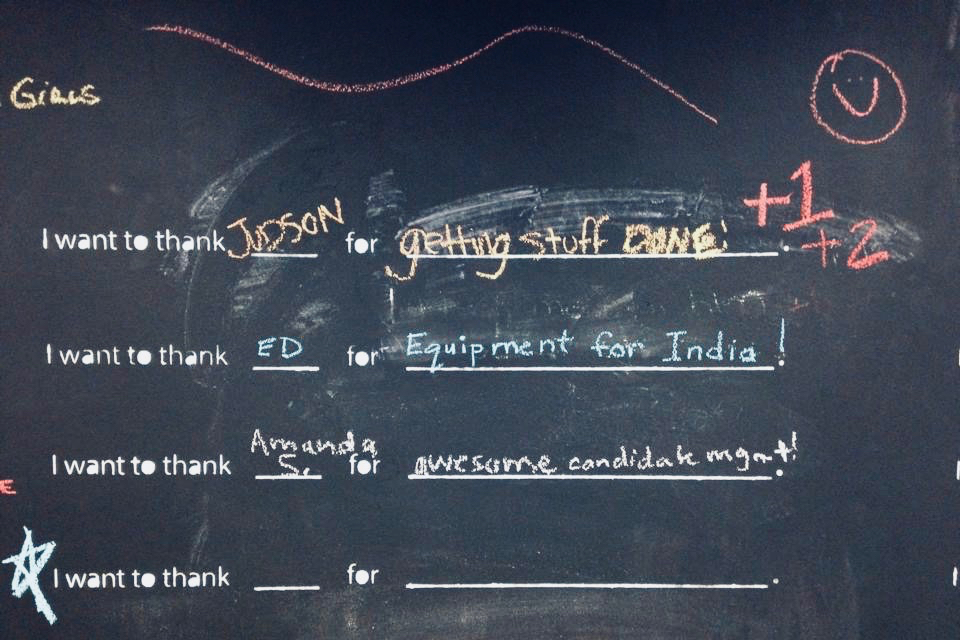 GIRLS
I want to thank JUDSON for getting stuff DONE! . +1
+2
I want to thank ED for Equipment for India!
I want to thank Amanda S. for awesome candidate mgmt!
I want to thank ___ for ___.